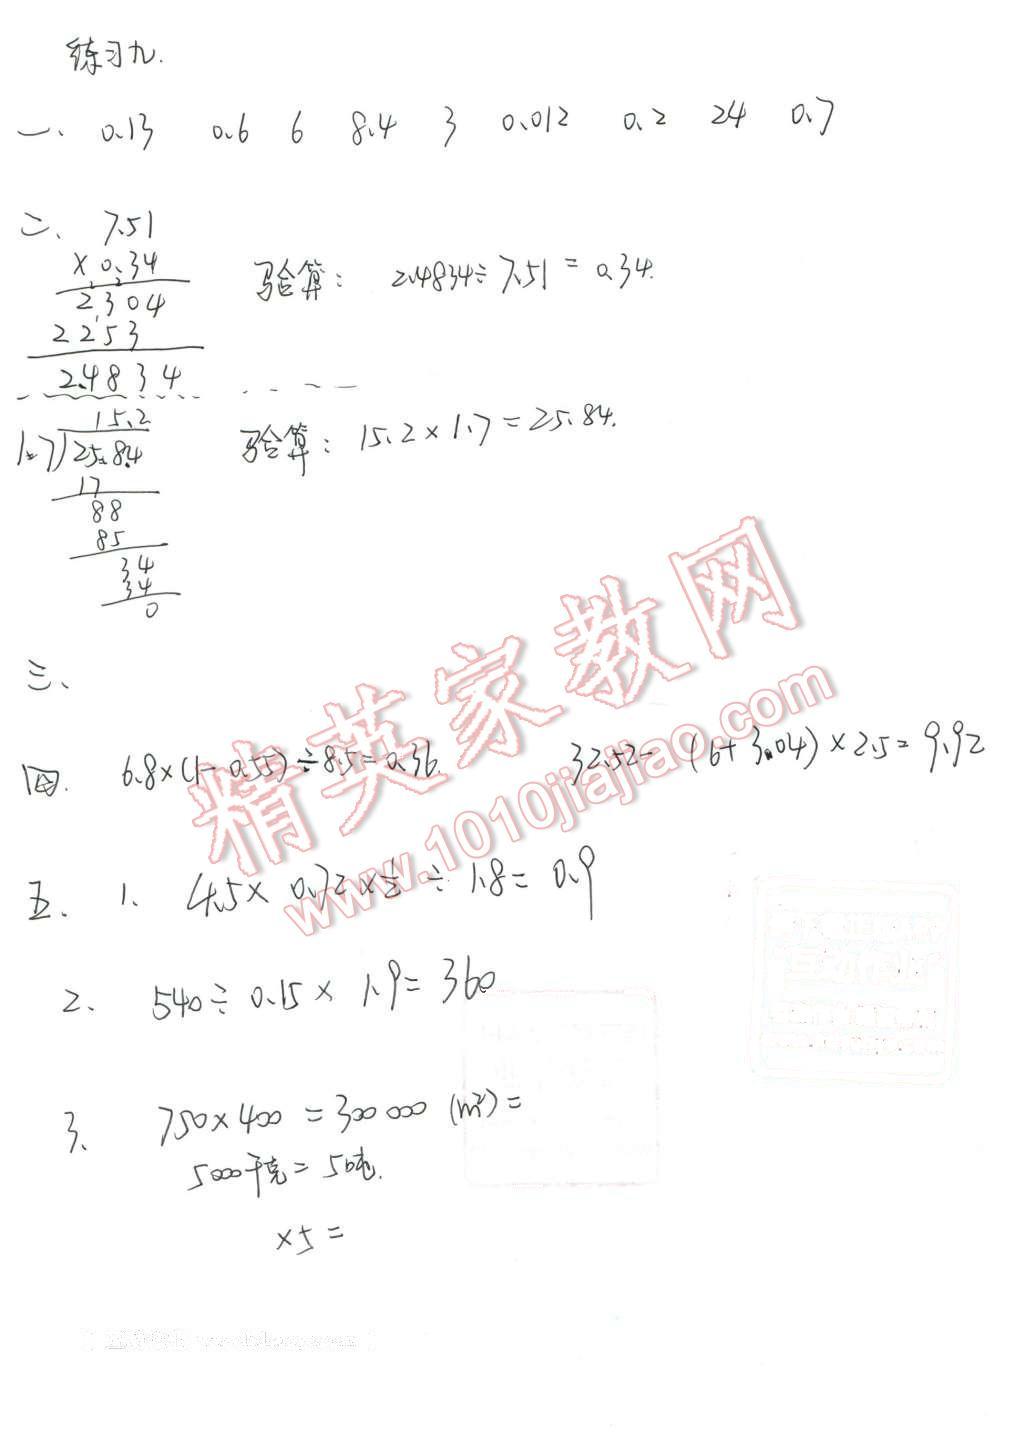 练习九.
一、 0.13 0.6 6 8.4 3 0.012 0.2 24 0.7
二、 7.51
× 0.34
2304
2253
2.4834
验算: 2.4834÷7.51=0.34.
15.2
1.7 25.84
17
88
85
34
34
0
验算: 15.2×1.7=25.84.
三、
四. 6.8×(1-0.55)÷8.5=0.36. 32.52-(6+3.04)×2.5=9.92
五. 1. 4.5× 0.72×½÷1.8=0.9
2、 540÷0.15× 1.9=360
3. 750×400=300000 (m²)=
5000千克=5吨.
×5=
精英家教网
www.1010jiajiao.com